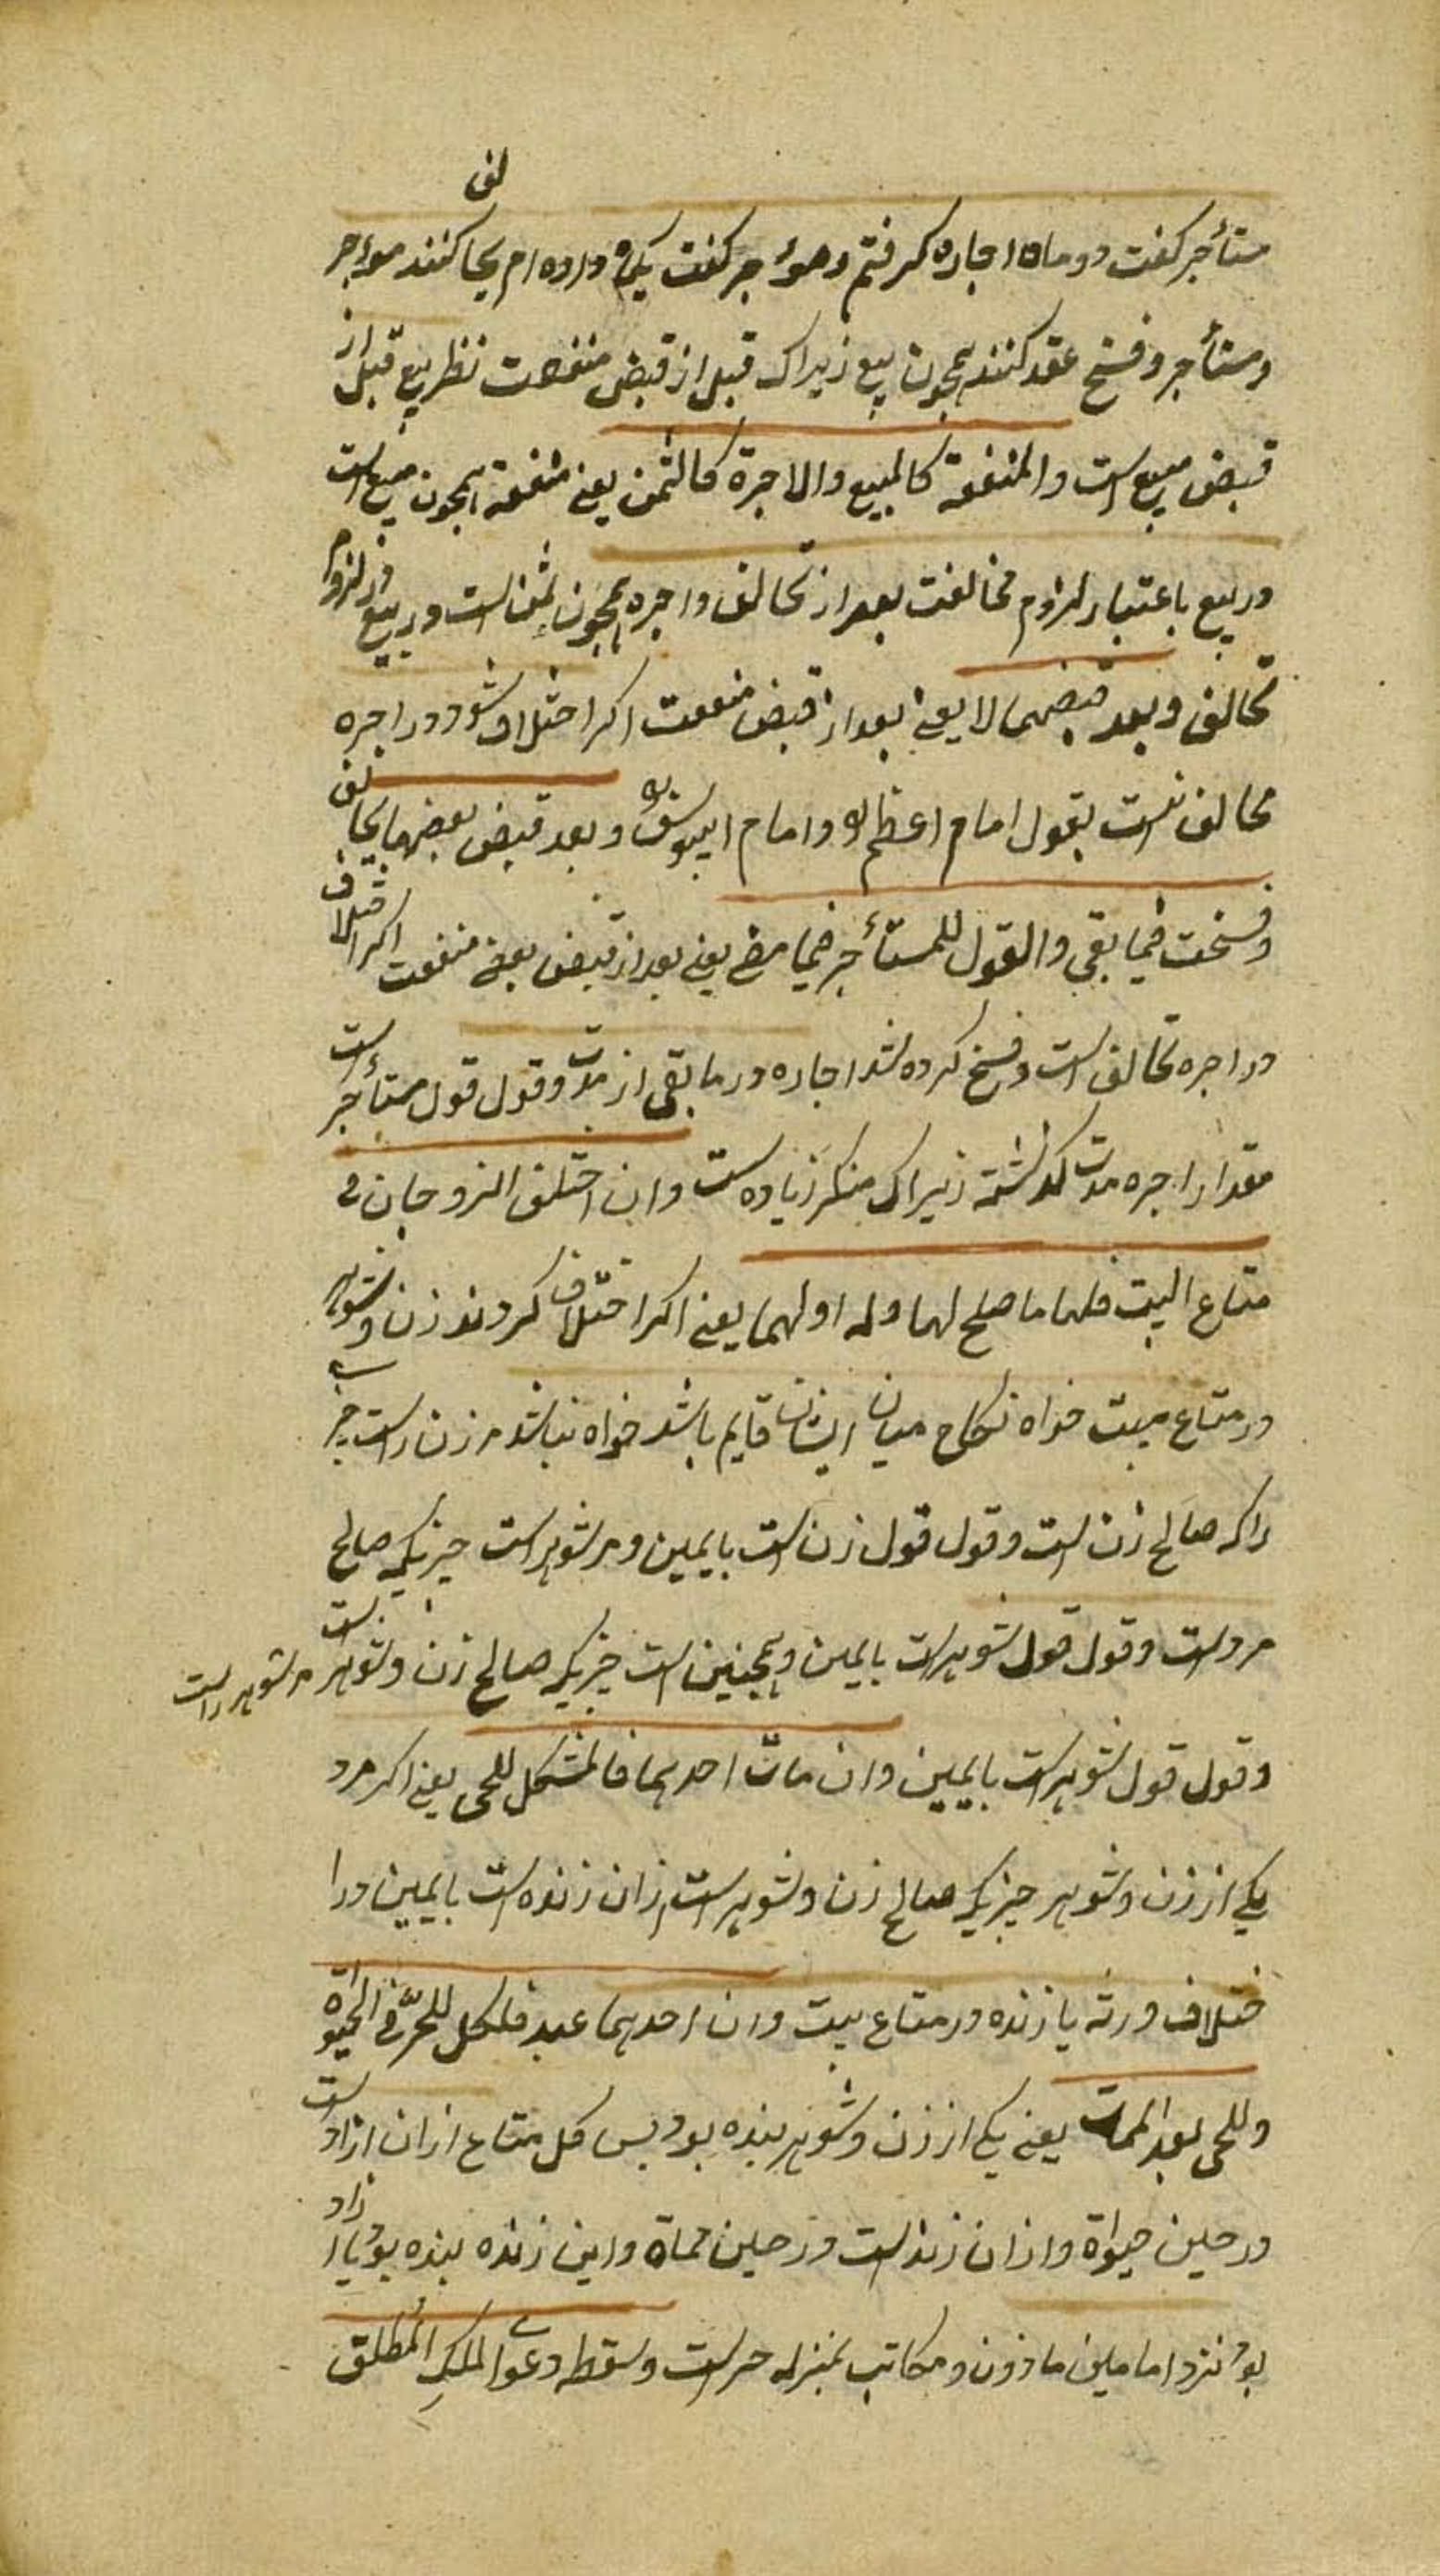 مستأجر کفت دو ماه اجاره کرفتم و مؤجر کفت یکماه داده ام تحالف کنند مواجر
ومستأجر وفسخ عقد کنند همچون بیع زیراک قبل از قبض منفعت نظر بیع قبل از
قبض مبیع است والمنفعة کالمبیع والاجرة کالثمن یعنی منفعة همچون مبیع است
در بیع باعتبار لزوم مخالفت بعد از تحالف واجره همچون ثمن است در بیع در لزوم
تحالف وبعد قبضهما لا یعنی بعد از قبض منفعت اکر اختلاف شود در اجره
تحالف نیست بقول امام اعظم و امام ابیوسف وبعد قبض بعضها یحالف
وفسخت فیما بقی والقول للمستأجر فیما مضی یعنی بعد از قبض بعض منفعت اکر اختلاف
در اجره تحالف است وفسخ کرده شد اجاره در ما بقی از مدت وقول قول مستأجر است
مقدار اجره مدت کذشته زیراک منکر زیاده ست وان اختلف الزوجان فی
متاع البیت فلهما ما صلح لهما وله او لهما یعنی اکر اختلاف کردند زن وشوهر
در متاع بیت خواه نکاح میان ایشان قایم باشد خواه نباشد مر زن راست چیزی
راکه صالح زن است وقول قول زن است بایمین ومر شوهر است چیزیکه صالح
مرد است وقول قول شوهر است بایمین وهمچنین است چیزیکه صالح زن وشوهر است مر شوهر راست
وقول قول شوهر است بایمین وان مات احدهما فالمشکل للحی یعنی اکر مرد
یکی از زن وشوهر چیزیکه صالح زن وشوهر است ازان زنده است بایمین در ا
ختلاف ورثه یا زنده در متاع بیت وان احدهما عبد فلکل للحر فی الحیوة
وللحی بعد الممات یعنی یکی از زن وشوهر بنده بود پس کل متاع ازان ازاد است
در حین حیوة وازان زنده است در حین مماة واین زنده بنده بود یا ازاد
بود نزد امامین ماذون ومکاتب بمنزله حر است وسقط دعوی الملک المطلق